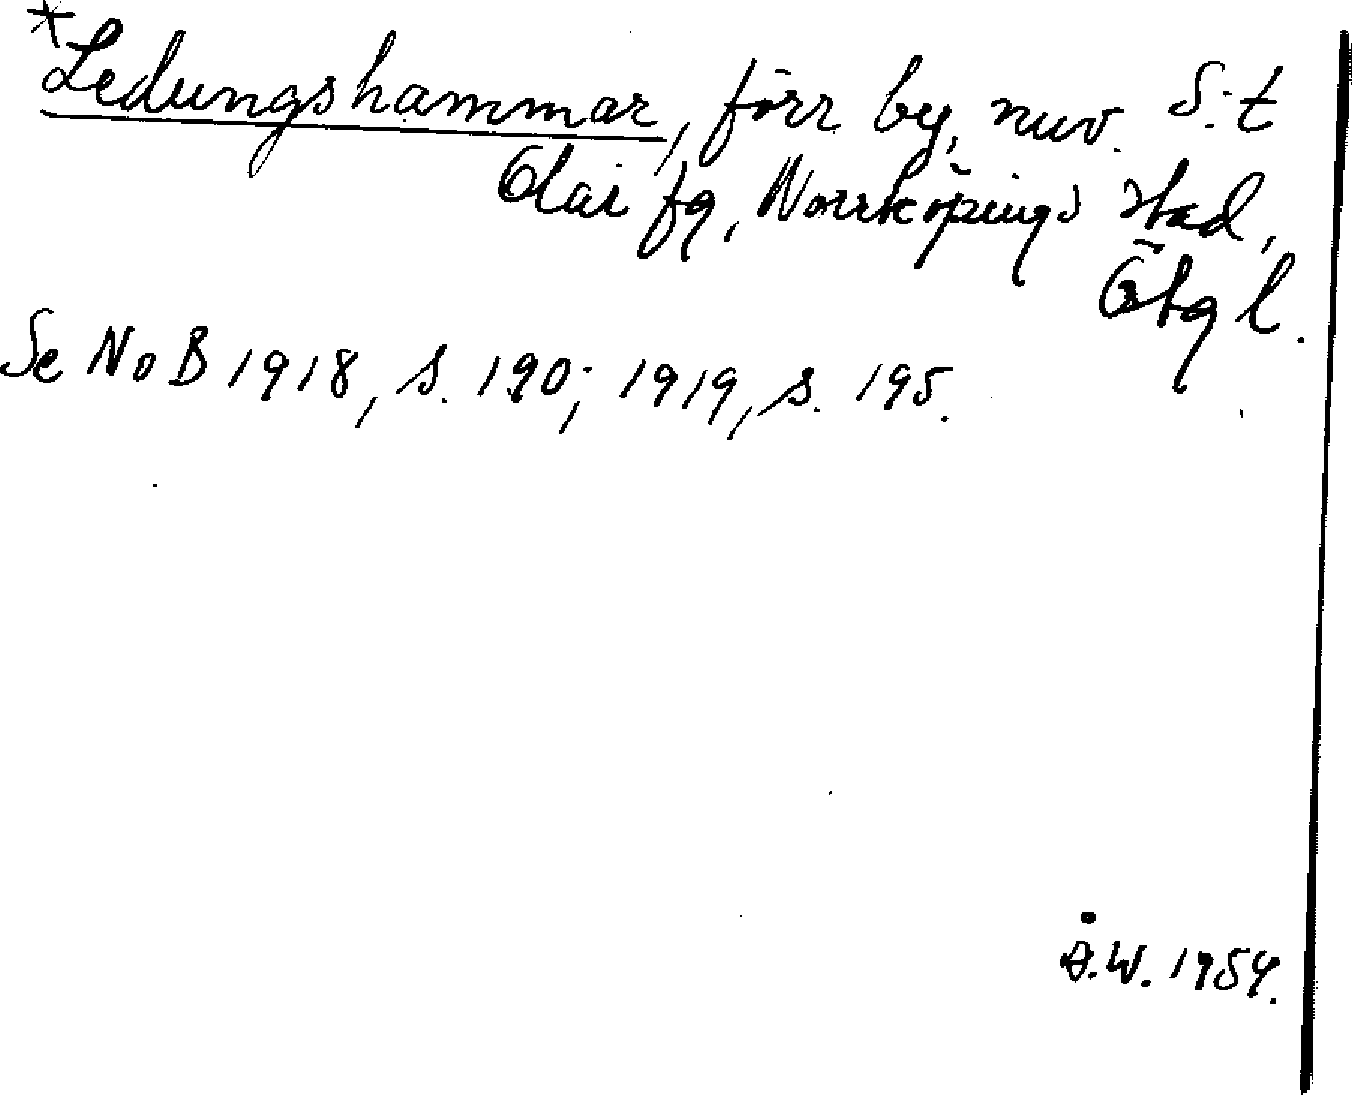 *Ledungshammar, förr by, nuv. S:t
Olai fg, Norrköpings stad,
Östg l.
Se NoB 1918, s. 190; 1919, s. 195.
Å.W. 1954.